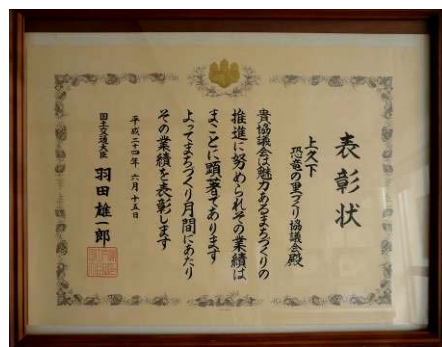 表彰状
上久下
恐竜の里づくり協議会殿
貴協議会は魅力あるまちづくりの
推進に努められその業績は
まことに顕著であります
よってまちづくり月間にあたり
その業績を表彰します
平成二十四年六月十五日
国土交通大臣 羽田雄一郎